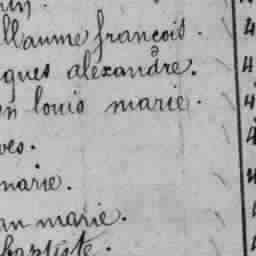 llaume françois. 4
ques aléxandre. 4
n louis marie. 4
ves. 4
marie. 4
an marie.
baptiste.